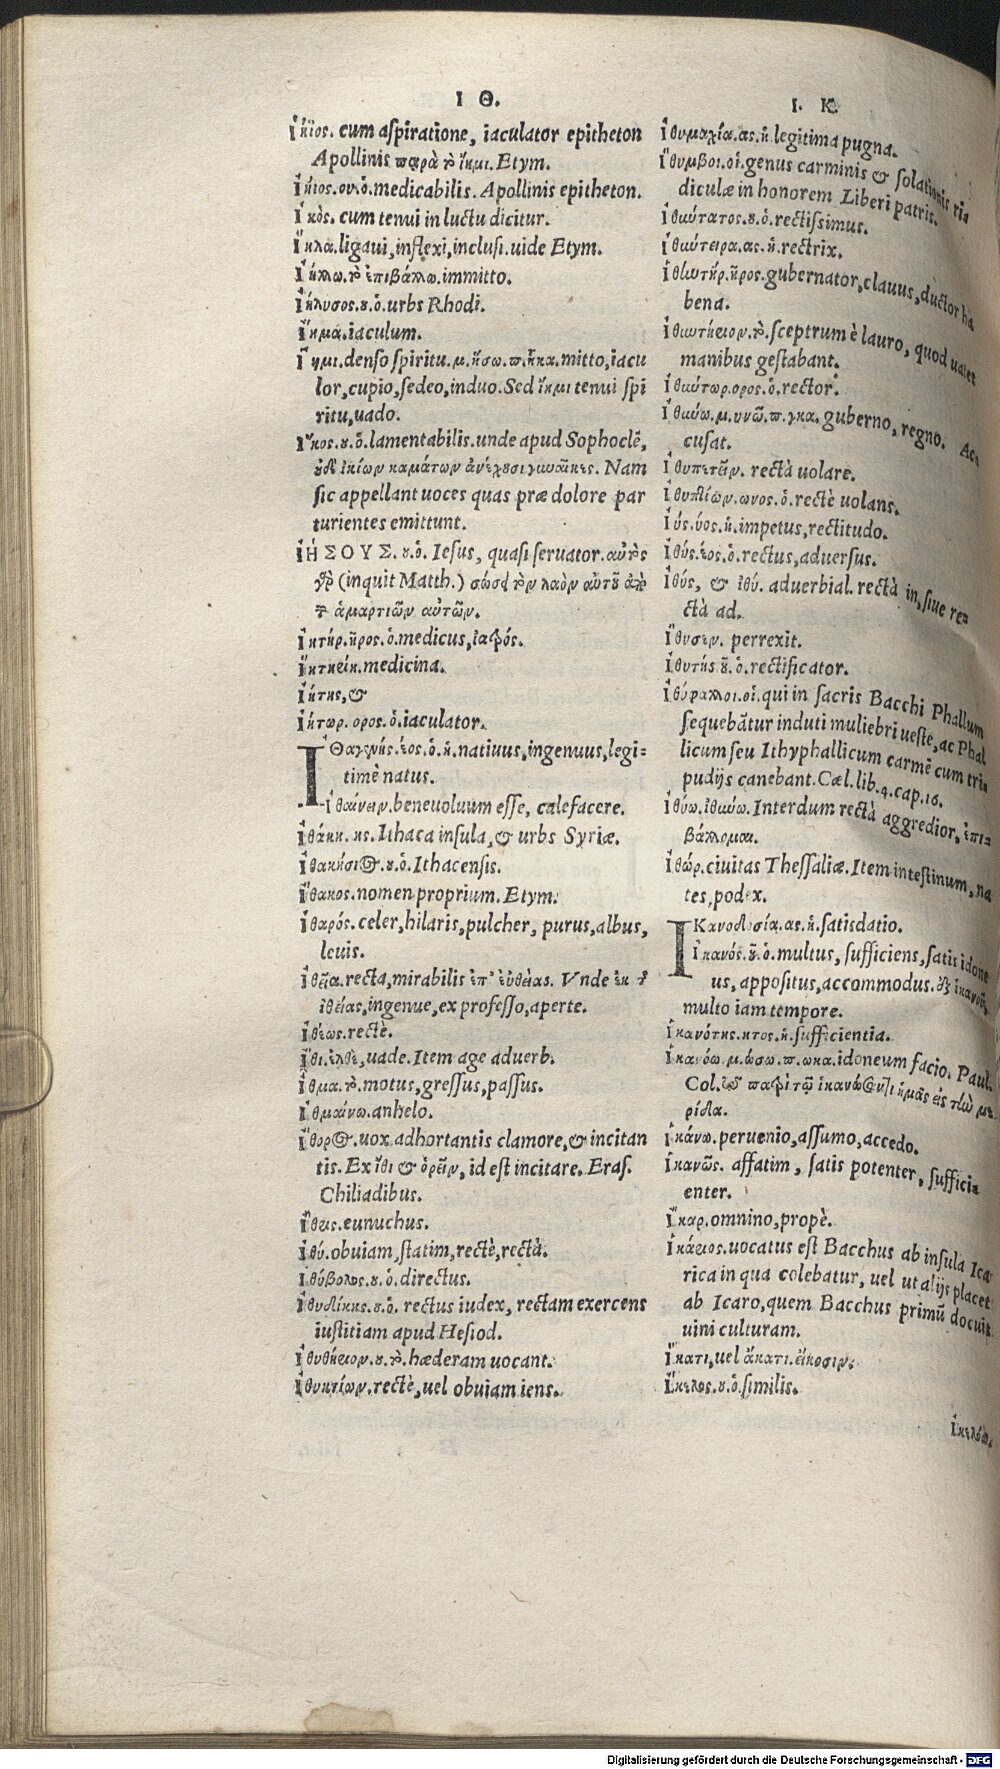 Ι Θ.
ἰήϊος. cum aſpiratione, iaculator epitheton
Apollinis παρὰ τὸ ἵημι. Etym.
ἰήιος. ου. ὁ. medicabilis. Apollinis epitheton.
cum tenui in luctu dicitur.
ligaui, inflexi, incluſi. uide Etym.
τὸ ἐπιβάλλω. immitto.
ἰήλυσος. ȣ. ὁ. urbs Rhodi.
ἵημα. iaculum.
ἵημι. denſo ſpiritu. μ. ἥσω. π. ἧκα. mitto, iacu
lor, cupio, ſedeo, induo. Sed ἴημι tenui ſpi
ritu, uado.
ȣ. ὁ. lamentabilis. unde apud Sophoclē,
καμάτων ἀνέχουσι γυναῖκες. Nam
ſic appellant uoces quas præ dolore par
turientes emittunt.
ἸΗΣΟΥΣ. ȣ. ὁ. Ieſus, quaſi ſeruator. αὐτὸς
γὰρ (inquit Matth.) σώσει τὸν λαὸν αὑτοῦ ἀπὸ
τῶν ἁμαρτιῶν αὐτῶν.
ἰητήρ. ῆρος. ὁ. medicus, ἰατρός.
medicina.
ἰήτης, &
ἰήτωρ. ορος. ὁ. iaculator.
ΙΘαγενής. έος. ὁ. ἡ. natiuus, ingenuus, legi=
timè natus.
ἰθαίνειν. beneuolum eſſe, calefacere.
ἰθάκη. ης. Ithaca inſula, & urbs Syriæ.
ἰθακήσιος. ȣ. ὁ. Ithacenſis.
ἴθακος. nomen proprium. Etym.
ἰθαρός. celer, hilaris, pulcher, purus, albus,
leuis.
ἰθεῖα. recta, mirabilis ἐπ' εὐθείας. Vnde ἐκ τῆς
ἰθείας, ingenue, ex profeſſo, aperte.
ἰθέως. rectè.
ἴθι. ἐλθὲ, uade. Item age aduerb.
ἴθμα. τὸ. motus, greſſus, paſſus.
ἰθμαίνω. anhelo.
uox adhortantis clamore, & incitan
tis. Ex ἴθι & ὀρεῖν, id eſt incitare. Eraſ.
Chiliadibus.
eunuchus.
ἰθύ. obuiam, ſtatim, rectè, rectà.
ἰθύβολος. ȣ. ὁ. directus.
ἰθυδίκης. ȣ. ὁ. rectus iudex, rectam exercens
iuſtitiam apud Heſiod.
ȣ. τὸ. hæderam uocant.
rectè, uel obuiam iens.
Ι. Κ.
ἰθυμαχία. ας. ἡ. legitima pugna.
ἴθυμβοι. οἱ. genus carminis & ſolationis ri
diculæ in honorem Liberi patris.
ἰθύτατος. ȣ. ὁ. rectiſsimus.
ἰθύντειρα. ας. ἡ. rectrix.
ἰθυντήρ. ῆρος. gubernator, clauus, ductor ha
bena.
τὸ. ſceptrum è lauro, quod uates
manibus geſtabant.
ἰθύντωρ. ορος. ὁ. rector.
ἰθύνω. μ. υνῶ. π. γκα. guberno, regno. Ac
cuſat.
ἰθυπετεῖν. rectà uolare.
ωνος. ὁ. rectè uolans.
ἰθύς. ύος. ἡ. impetus, rectitudo.
ἰθύς. έος. ὁ. rectus, aduerſus.
ἰθύς, & ἰθύ. aduerbial. rectà in, ſiue re=
ctà ad.
ἴθυσεν. perrexit.
ἰθυτής. ȣ. ὁ. rectificator.
οἱ. qui in ſacris Bacchi Phallum
ſequebātur induti muliebri ueſte, ac Phal
licum ſeu Ithyphallicum carmē cum tri
pudijs canebant. Cæl. lib. 4. cap. 16.
ἰθύω. ἰθύνω. Interdum rectà aggredior, ἐπι=
βάλλομαι.
ἰθώρ. ciuitas Theſſaliæ. Item inteſtinum, na
tes, podex.
ΙΚανοδοσία. ας. ἡ. ſatisdatio.
ἱκανός. ȣ. ὁ. multus, ſufficiens, ſatis idone
us, appoſitus, accommodus. ἐξ ἱκανοῦ,
multo iam tempore.
ἱκανότης. ητος. ἡ. ſufficientia.
ἱκανόω. μ. ώσω. π. ωκα. idoneum facio. Paul.
Col. τῷ πατρὶ τῷ ἱκανώσαντι ἡμᾶς εἰς τὴν με
ρίδα.
ἱκάνω. peruenio, aſſumo, accedo.
ἱκανῶς. affatim, ſatis potenter, ſufficie
enter.
ἴκαρ. omnino, propè.
ἰκάριος. uocatus eſt Bacchus ab inſula Ica
rica in qua colebatur, uel ut alijs placet
ab Icaro, quem Bacchus primū docuit
uini culturam.
ἴκατι, uel εἴκατι. εἴκοσιν.
ἴκελος. ȣ. ὁ. ſimilis.
ἰκελόω.
Digitalisierung gefördert durch die Deutsche Forschungsgemeinschaft - DFG